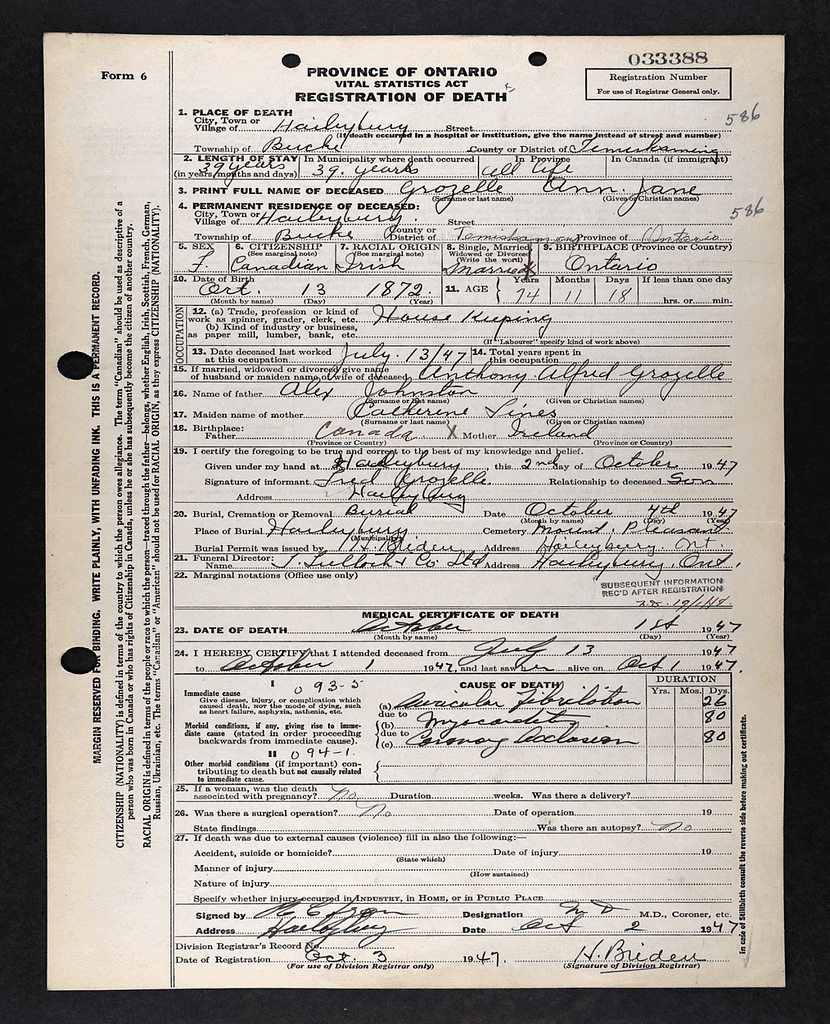 033388
Form 6
PROVINCE OF ONTARIO
VITAL STATISTICS ACT
REGISTRATION OF DEATH
Registration Number
For use of Registrar General only.
586
1. PLACE OF DEATH
City, Town or
Village of Haileybury Street
(If death occurred in a hospital or institution, give the name instead of street and number)
Township of Bucke County or District of Temiskaming
2. LENGTH OF STAY In Municipality where death occurred In Province In Canada (if immigrant)
(in years, months and days) 39 years 39. years all life
3. PRINT FULL NAME OF DECEASED Grozelle Ann. Jane
(Surname or last name) (Given or Christian names)
4. PERMANENT RESIDENCE OF DECEASED:
City, Town or
Village of Haileybury. Street
586
Township of Bucke County or District of Temiskaming Province of Ontario
5. SEX 6. CITIZENSHIP 7. RACIAL ORIGIN 8. Single, Married, 9. BIRTHPLACE (Province or Country)
(See marginal note) (See marginal note) Widowed or Divorced
(Write the word)
F. Canadian Irish Married Ontario
10. Date of Birth 11. AGE Years Months Days If less than one day
Oct. 13 1872. 74 11 18 hrs. or min.
(Month by name) (Day) (Year)
OCCUPATION
12. (a) Trade, profession or kind of
work as spinner, grader, clerk, etc. House Keeping
(b) Kind of industry or business,
as paper mill, lumber, bank, etc.
(If "Labourer" specify kind of work above)
13. Date deceased last worked
at this occupation July. 13/47 14. Total years spent in
this occupation
15. If married, widowed or divorced give name
of husband or maiden name of wife of deceased Anthony Alfred Grozelle
16. Name of father Alex Johnston
(Surname or last name) (Given or Christian names)
17. Maiden name of mother Catherine Sines
(Surname or last name) (Given or Christian names)
18. Birthplace:
Father Canada X Mother Ireland
(Province or Country) (Province or Country)
19. I certify the foregoing to be true and correct to the best of my knowledge and belief.
Given under my hand at Haileybury this 2nd day of October 1947
Signature of informant Fred Grozelle Relationship to deceased Son
Address Haileybury
20. Burial, Cremation or Removal Burial Date October 4th 1947
(Month by name) (Day) (Year)
Place of Burial Haileybury Cemetery Mount Pleasant
(Municipality)
Burial Permit was issued by H. Breden Address Haileybury. Ont.
21. Funeral Director:
Name & Co. Ltd Address Haileybury Ont.
22. Marginal notations (Office use only)
SUBSEQUENT INFORMATION
REC'D AFTER REGISTRATION
MEDICAL CERTIFICATE OF DEATH
23. DATE OF DEATH October 1st 1947
(Month by name) (Day) (Year)
24. I HEREBY CERTIFY that I attended deceased from July 13 1947
to October 1 1947, and last saw her alive on Oct 1 1947.
CAUSE OF DEATH DURATION
I Yrs. Mos. Dys.
093-5
Immediate cause
Give disease, injury, or complication which
caused death, NOT the mode of dying, such
as heart failure, asphyxia, asthenia, etc.
(a) Auricular Fibrilation 26
due to
Morbid conditions, if any, giving rise to imme-
diate cause (stated in order proceeding
backwards from immediate cause).
(b) Myocarditis 80
due to
(c) Coronary Occlusion 80
II 094-1.
Other morbid conditions (if important) con-
tributing to death but not causally related
to immediate cause.
25. If a woman, was the death
associated with pregnancy? No Duration weeks. Was there a delivery?
26. Was there a surgical operation? No Date of operation 19
State findings Was there an autopsy? No
27. If death was due to external causes (violence) fill in also the following:—
Accident, suicide or homicide? Date of injury 19
(State which)
Manner of injury
(How sustained)
Nature of injury
Specify whether injury occurred in INDUSTRY, in HOME, or in PUBLIC PLACE
Signed by Designation M D M.D., Coroner, etc.
Address Haileybury Date Oct 2 1947
Division Registrar's Record No.
Date of Registration Oct. 3 1947. H. Breden
(For use of Division Registrar only) (Signature of Division Registrar)
MARGIN RESERVED FOR BINDING. WRITE PLAINLY, WITH UNFADING INK. THIS IS A PERMANENT RECORD.
CITIZENSHIP (NATIONALITY) is defined in terms of the country to which the person owes allegiance. The term "Canadian" should be used as descriptive of a
person who was born in Canada or who has rights of Citizenship in Canada, unless he or she has subsequently become the citizen of another country.
RACIAL ORIGIN is defined in terms of the people or race to which the person—traced through the father—belongs, whether English, Irish, Scottish, French, German,
Russian, Ukrainian, etc. The terms "Canadian" or "American" should not be used for RACIAL ORIGIN, as they express CITIZENSHIP (NATIONALITY).
In case of Stillbirth consult the reverse side before making out certificate.